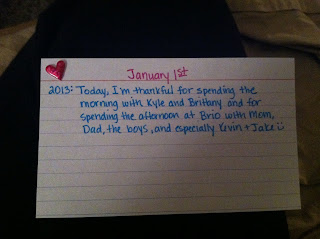 January 1st
2013: Today, I'm thankful for spending the
morning with Kyle and Brittany and for
spending the afternoon at Brio with Mom,
Dad, the boys, and especially Kevin + Jake